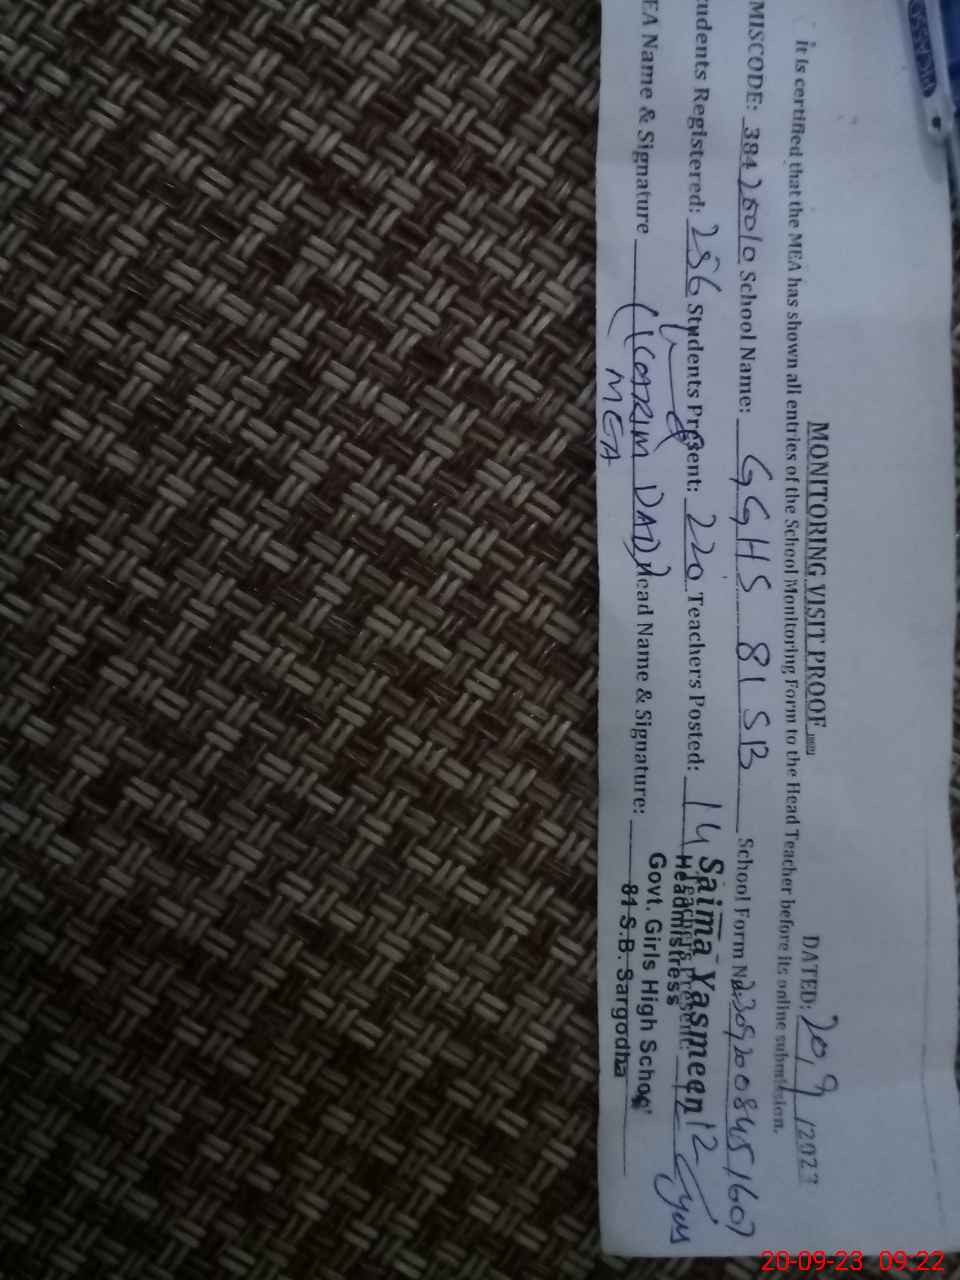 MONITORING VISIT PROOF
DATED: 20/9/2023
it is certified that the MEA has shown all entries of the School Monitoring Form to the Head Teacher before its online submission.
MISCODE: 38425010 School Name: GGHS 81 SB School Form No:
tudents Registered: 256 Students Present: 220 Teachers Posted: 14 Teachers Present: 12
EA Name & Signature (KARIM DAD) Head Name & Signature:
MEA
Saima Yasmeen
Headmistress
Govt. Girls High School
81 S.B. Sargodha
20-09-23 09:22